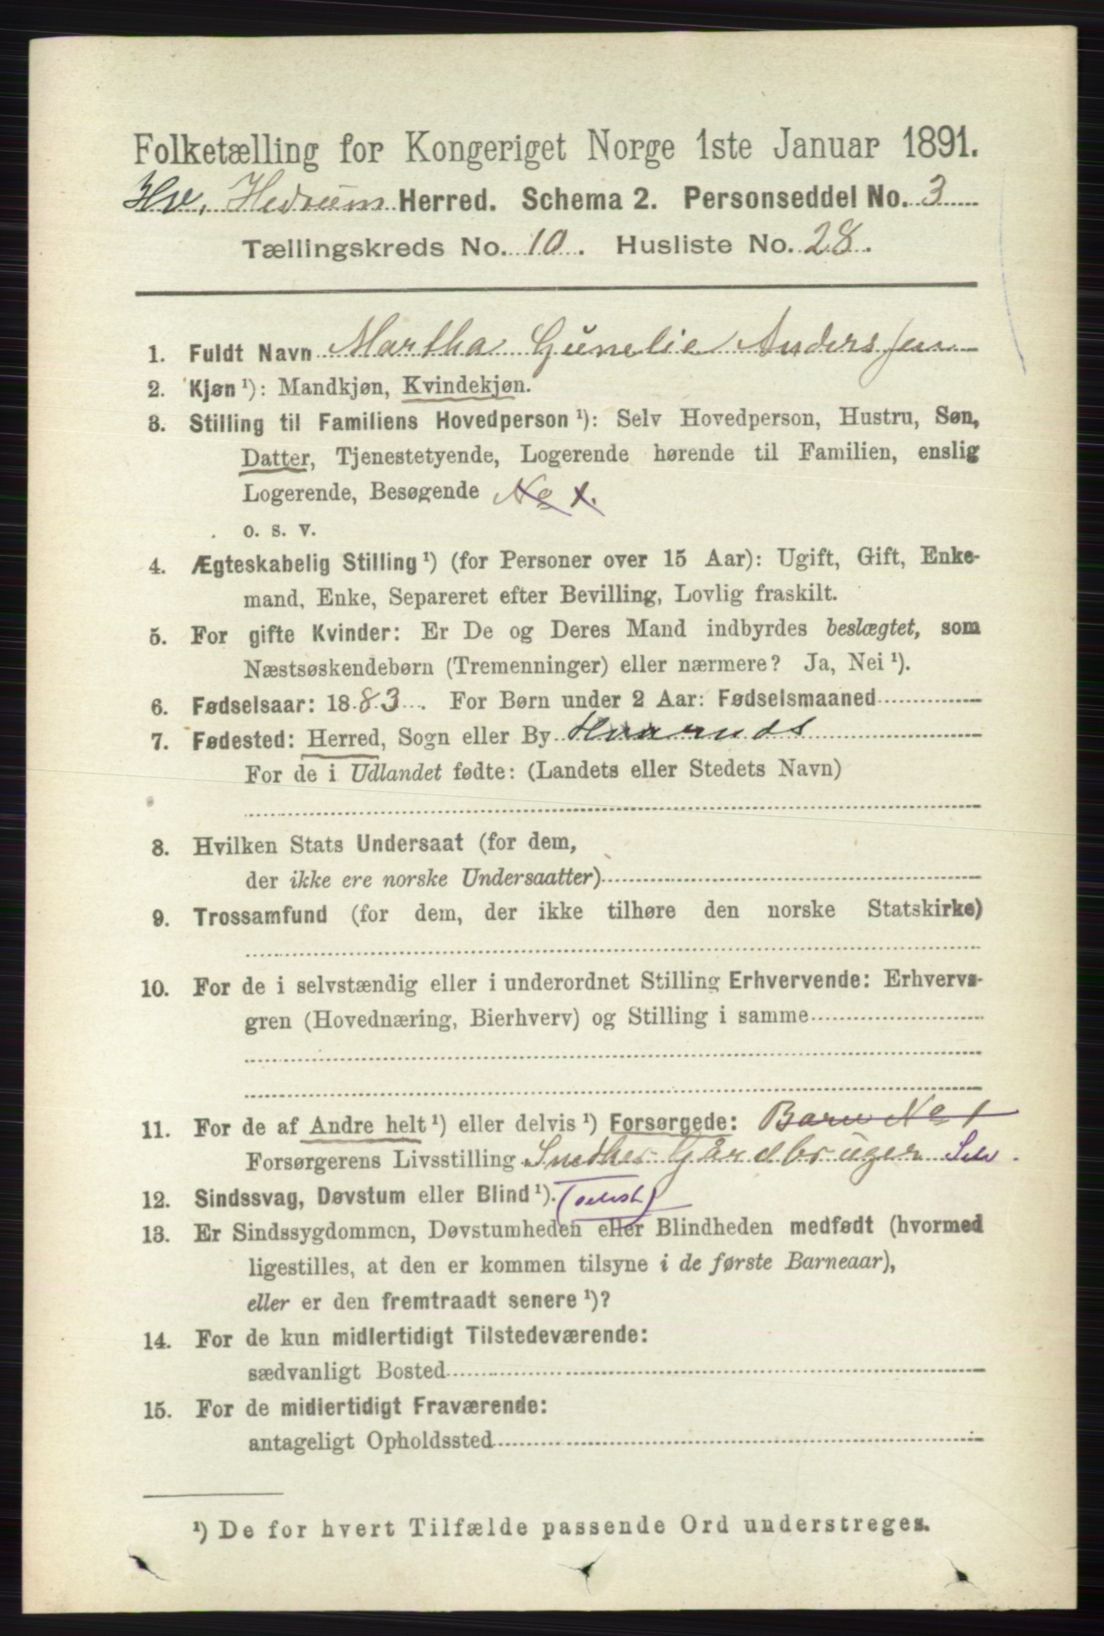 Folketælling for Kongeriget Norge 1ste Januar 1891.
Hv. Hedrum Herred. Schema 2. Personseddel No. 3
Tællingskreds No. 10. Husliste No. 28.
1. Fuldt Navn Martha Gunelie Andersen
2. Kjøn ¹): Mandkjøn, Kvindekjøn.
3. Stilling til Familiens Hovedperson ¹): Selv Hovedperson, Hustru, Søn,
Datter, Tjenestetyende, Logerende hørende til Familien, enslig
Logerende, Besøgende No 1.
o. s. v.
4. Ægteskabelig Stilling ¹) (for Personer over 15 Aar): Ugift, Gift, Enke-
mand, Enke, Separeret efter Bevilling, Lovlig fraskilt.
5. For gifte Kvinder: Er De og Deres Mand indbyrdes beslægtet, som
Næstsøskendebørn (Tremenninger) eller nærmere? Ja, Nei ¹).
6. Fødselsaar: 1883. For Børn under 2 Aar: Fødselsmaaned
7. Fødested: Herred, Sogn eller By
For de i Udlandet fødte: (Landets eller Stedets Navn)
8. Hvilken Stats Undersaat (for dem,
der ikke ere norske Undersaatter)
9. Trossamfund (for dem, der ikke tilhøre den norske Statskirke)
10. For de i selvstændig eller i underordnet Stilling Erhvervende: Erhvervs-
gren (Hovednæring, Bierhverv) og Stilling i samme
11. For de af Andre helt ¹) eller delvis ¹) Forsørgede: Barn No 1
Forsørgerens Livsstilling Snedker Gårdbruger Selv.
12. Sindssvag, Døvstum eller Blind ¹).
13. Er Sindssygdommen, Døvstumheden eller Blindheden medfødt (hvormed
ligestilles, at den er kommen tilsyne i de første Barneaar),
eller er den fremtraadt senere ¹)?
14. For de kun midlertidigt Tilstedeværende:
sædvanligt Bosted
15. For de midlertidigt Fraværende:
antageligt Opholdssted
¹) De for hvert Tilfælde passende Ord understreges.